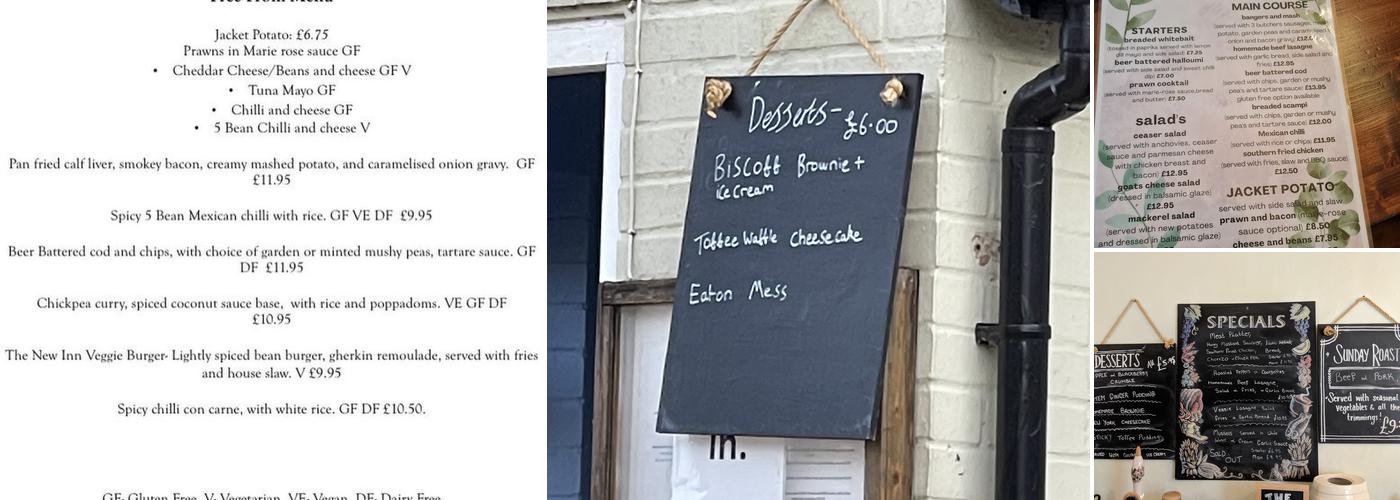 Free From Menu
Jacket Potato: £6.75
Prawns in Marie rose sauce GF
• Cheddar Cheese/Beans and cheese GF V
• Tuna Mayo GF
• Chilli and cheese GF
• 5 Bean Chilli and cheese V
Pan fried calf liver, smokey bacon, creamy mashed potato, and caramelised onion gravy. GF
£11.95
Spicy 5 Bean Mexican chilli with rice. GF VE DF £9.95
Beer Battered cod and chips, with choice of garden or minted mushy peas, tartare sauce. GF
DF £11.95
Chickpea curry, spiced coconut sauce base, with rice and poppadoms. VE GF DF
£10.95
The New Inn Veggie Burger- Lightly spiced bean burger, gherkin remoulade, served with fries
and house slaw. V £9.95
Spicy chilli con carne, with white rice. GF DF £10.50.
GF- Gluten Free, V- Vegetarian, VE- Vegan, DF- Dairy Free
Desserts - £6.00
Biscoff Brownie +
ice cream
Toffee Waffle Cheesecake
Eaton Mess
in.
STARTERS
breaded whitebait
(tossed in paprika served with lemon
mayo and side salad £7.25
beer battered halloumi
(served with side salad and sweet chilli
dip) £7.00
prawn cocktail
(served with marie-rose sauce, bread
and butter) £7.50
salad's
ceaser salad
(served with anchovies, ceaser
sauce and parmesan cheese
with chicken breast and
bacon) £12.95
goats cheese salad
(dressed in balsamic glaze)
£12.95
mackerel salad
(served with new potatoes
and dressed in balsamic glaze)
MAIN COURSE
bangers and mash
(served with 3 butchers sausages,
potato, garden peas and caramelised
onion and bacon gravy)
homemade beef lasagne
(served with garlic bread, side salad and
fries) £12.95
beer battered cod
(served with chips, garden or mushy
peas and tartare sauce) £13.95
gluten free option available
breaded scampi
(served with chips, garden or mushy
peas and tartare sauce) £12.00
Mexican chilli
(served with rice or chips) £11.95
southern fried chicken
(served with fries, slaw and BBQ sauce)
£12.50
JACKET POTATO
served with side salad and slaw
prawn and bacon (marie-rose
sauce optional) £8.50
cheese and beans £7.95
DESSERTS
BLACKBERRY
CRUMBLE
GINGER PUDDING
BROWNIE
YORK CHEESECAKE
STICKY Toffee Pudding
SPECIALS
Meat Platter,
Honey Mustard Sausages,
Southern Fried Chicken, Bread,
Homemade Beef Lasagne,
Salad & Fries,
Veggie Lasagne Salad
Fries & Garlic Bread
Mussels Served in
Cream Garlic Sauce
SOLD
OUT
SUNDAY ROAST
Beef or Pork
Served with seasonal
vegetables & all the
trimmings!
THE